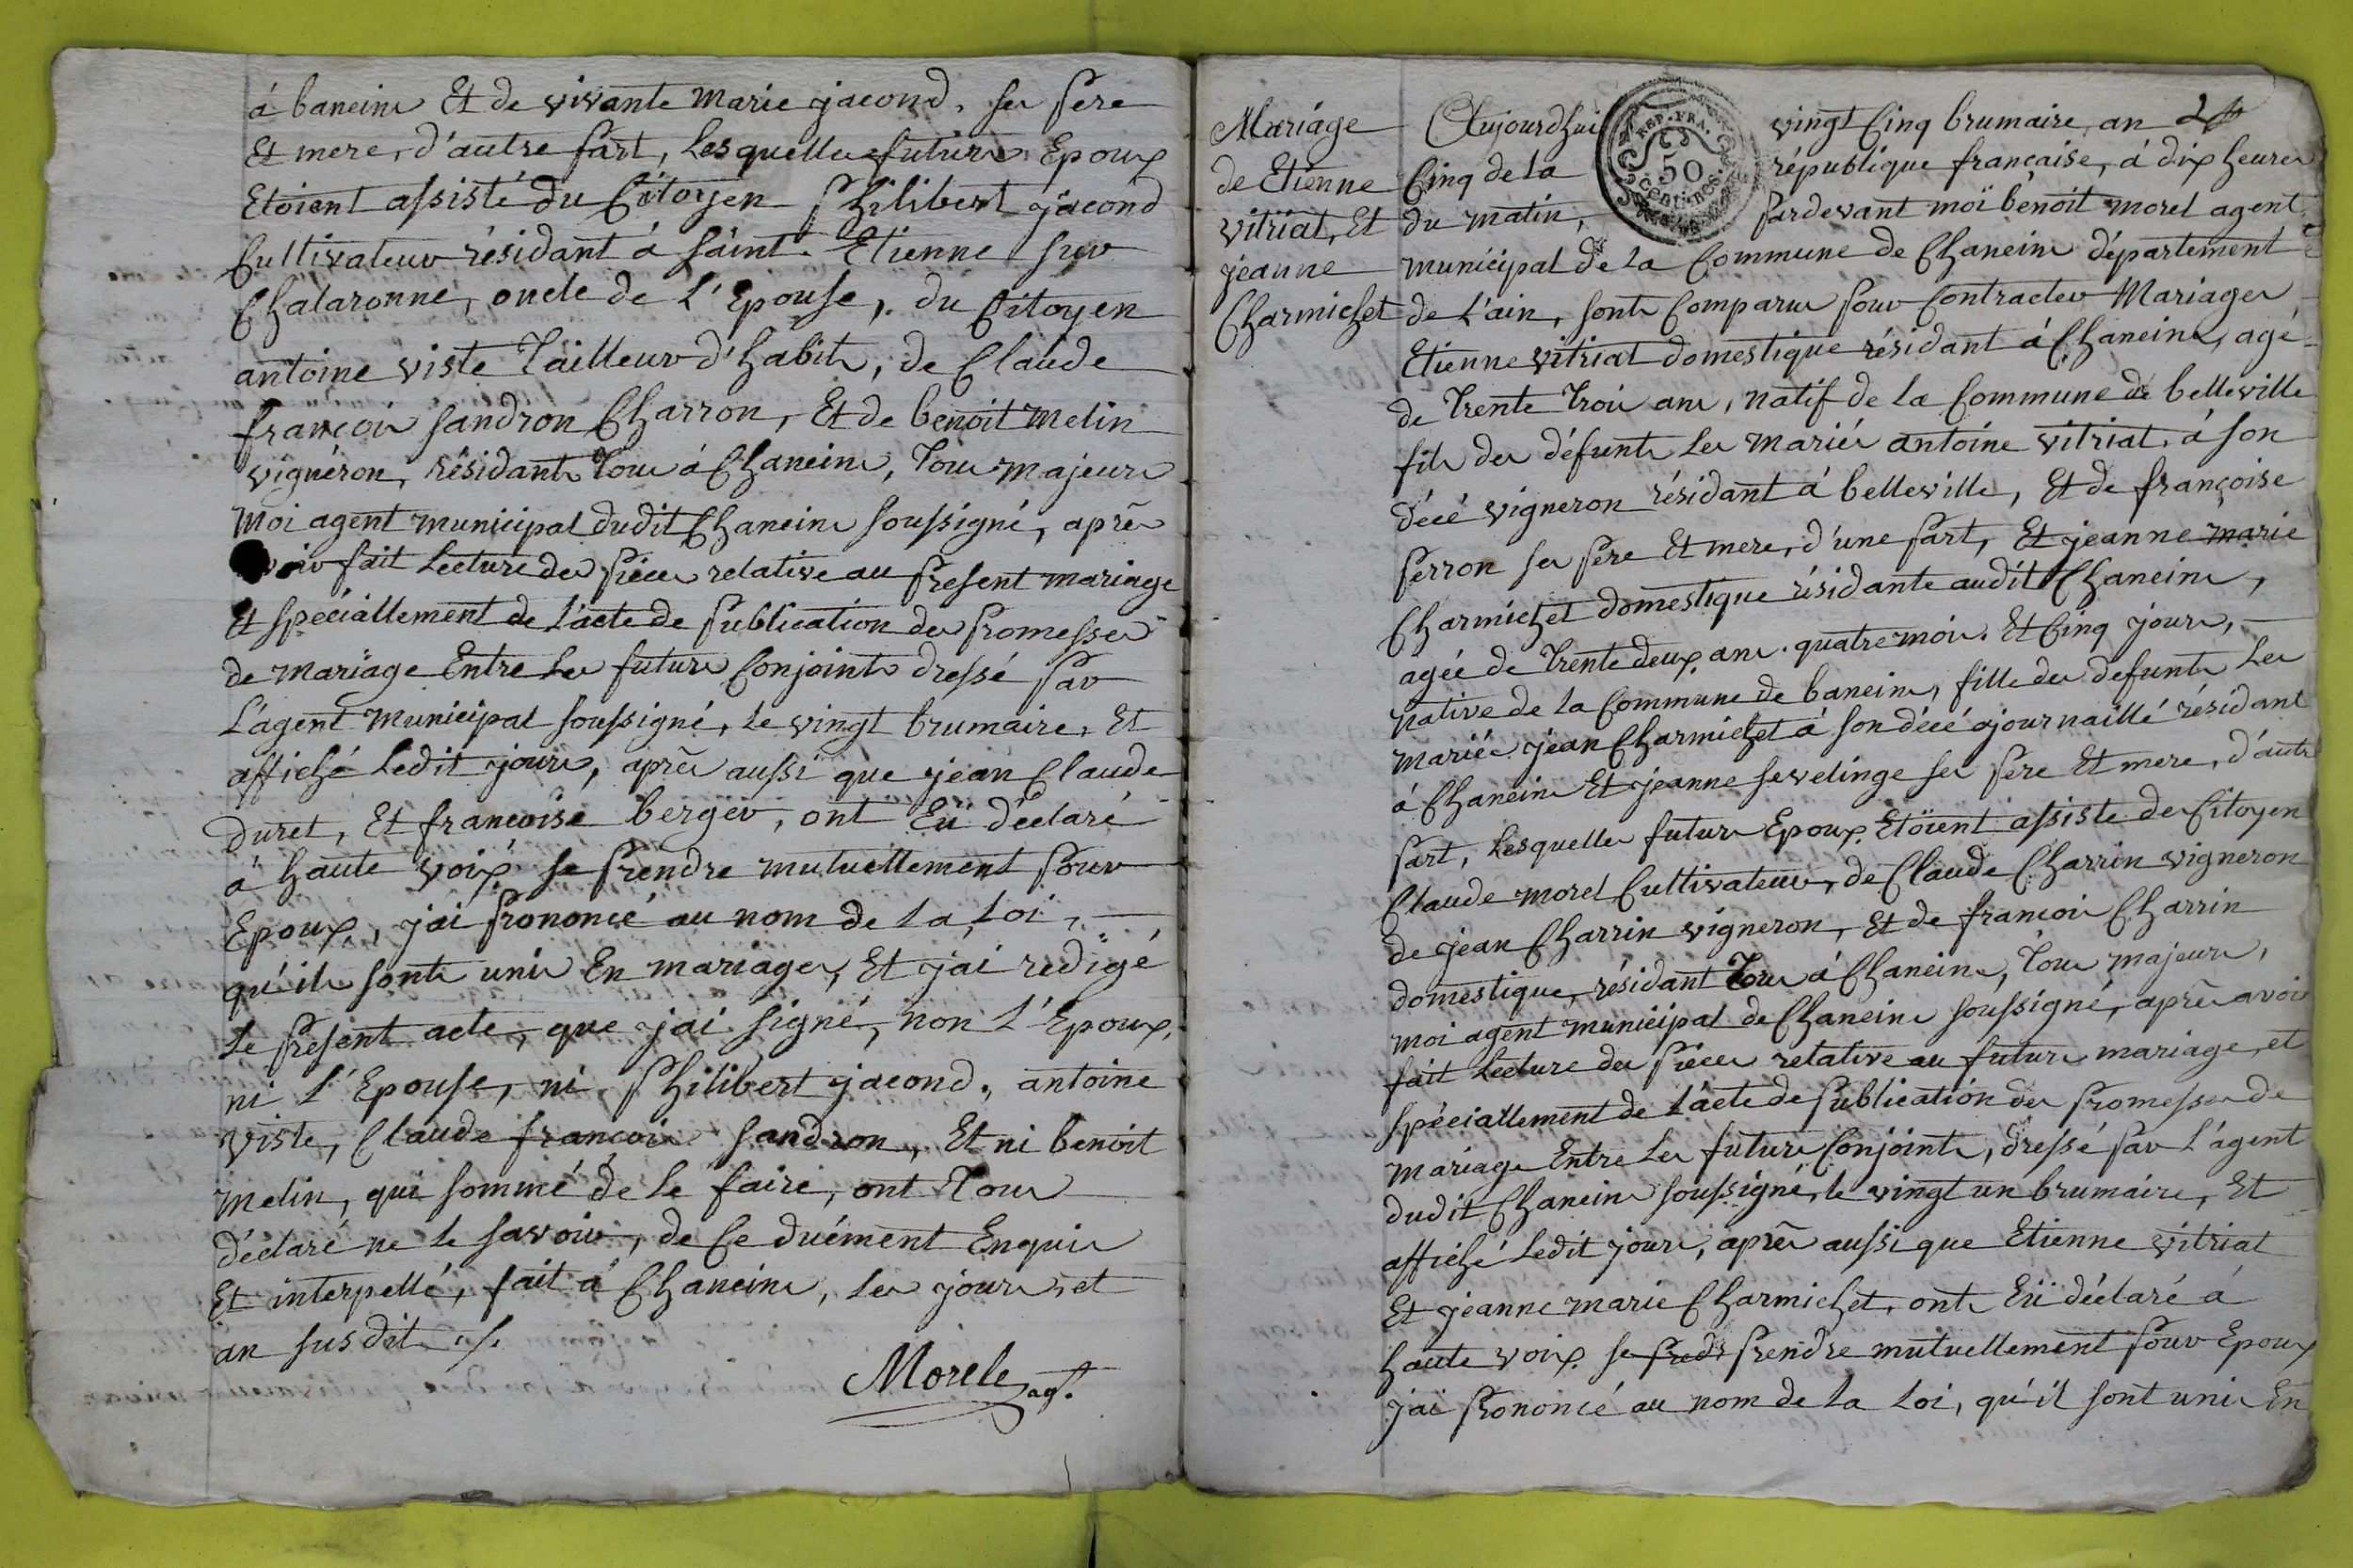 á baneins Et de vivante Marie jacond, ses pere
Et mere, d'autre part, Lesquelles futurs Epoux
Etoient assisté du Citoyen philibert jacond
Cultivateur résidant á saint-Etienne sur
Chalaronne, oncle de L'Epouse, du Citoyen
antoine viste Tailleur d'habits, de Claude
françois sandron Charron, Et de benoit melin
vignéron, résidants Tous á Chaneins, Tous majeurs
moi agent municipal dudit Chaneins soussigné, aprês
fait Lecture des pièces relative au present mariage
Et spéciallement de L'acte de publication des promesses
de mariage Entre Les futurs Conjoints dressé par
L'agent municipal soussigné, Le vingt brumaire, Et
affiché Ledit jours, aprês aussi que jean Claude
duret, Et francoise berger, ont Eü déclaré
á haute voix se prendre mutuellement pour
Epoux, j'ai prononcé au nom de La Loi,
qu'ils sonts unis En mariages, Et j'ai redigé
Le present acte, que j'ai signé, non L'Epoux,
ni L'Epouse, ni philibert jacond, antoine
viste, Claude françois sandron, Et ni benoit
melin, qui sommé de Le faire, ont Tous
déclaré ne Le savoir, de Ce duément Enquis
Et interpellé, fait á Chaneins, Les jours, et
an susdits ./.
Morele agt.
Mariáge
de Etienne
vitriat, Et
jeanne
Charmichet
REP. FRA.
50
CENT. MES.
Aujourdhui vingt Cinq brumaire, an
Cinq de La république française, á dix heures
du matin, pardevant moï benoit morel agent
municipal de La Commune de Chaneins département
de L'ain, sonts Comparus pour Contracter Mariages
Etienne vitriat domestique résidant á Chaneins, agé
de Trente Trois ans, natif de La Commune de belleville
fils des défunts Les mariés antoine vitriat, á son
décé vigneron résidant á belleville, Et de françoise
perron ses pere Et mere, d'une part, Et jeanne marie
Charmichet domestique résidante audit Chaneins,
agée de Trente deux ans quatre mois Et Cinq jours,
native de La Commune de baneins, fille des defunts Les
mariés jean Charmichet á son décé ajournaillé résidant
á Chaneins Et jeanne sevelinge ses pere Et mere, d'autre
part, Lesquelles futurs Epoux Etoïent assiste des Citoyen
Claude morel Cultivateur, de Claude Charrin vigneron
de jean Charrin vigneron, Et de francois Charrin
domestique, résidant Tous á Chaneins, Tous majeurs,
moi agent municipal de Chaneins soussigné, aprês avoir
fait Lecture des pièces relative au futurs mariage, et
spéciallement de L'acte de publication des promesses de
mariage Entre Les futurs Conjoints, dressé par L'agent
dudit Chaneins soussigné, le vingt un brumaire, Et
affiché Ledit jours, aprês aussi que Etienne vitriat
Et jeanne marie Charmichet, onts Eü déclaré á
haute voix se predr prendre mutuellement pour Epoux
j'ai prononcé au nom de La Loi, qu'il sont unis En